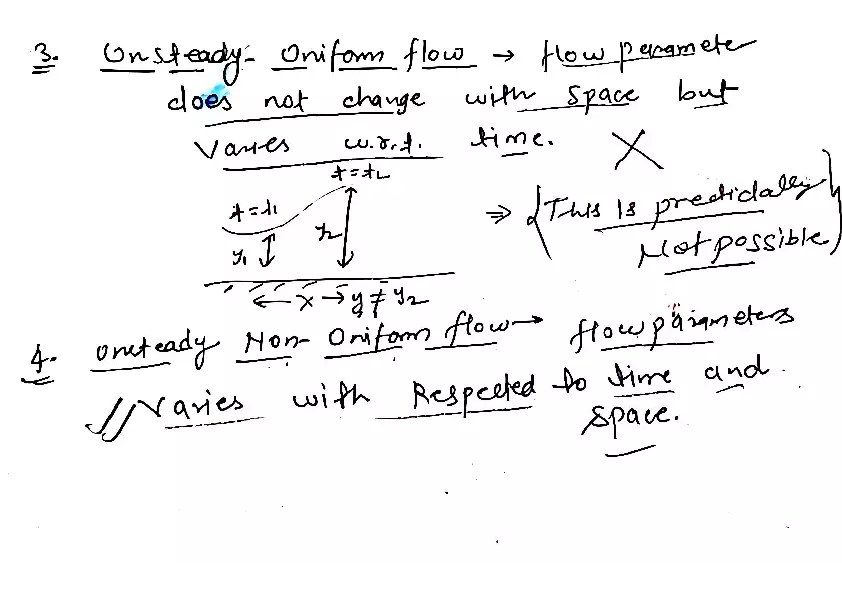 3. Unsteady- Uniform flow → flow parameter
does not change with space but
varies w.r.t. time. X
t=t2
t=t1
y1 y2
⇒ {This is practically
Not possible}
← x → y ≠ y2
4. unsteady Non- Uniform flow → flow parameters
Varies with Respected to time and
space.